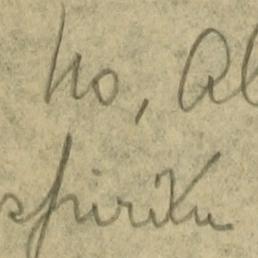 ho, Al
spiritu